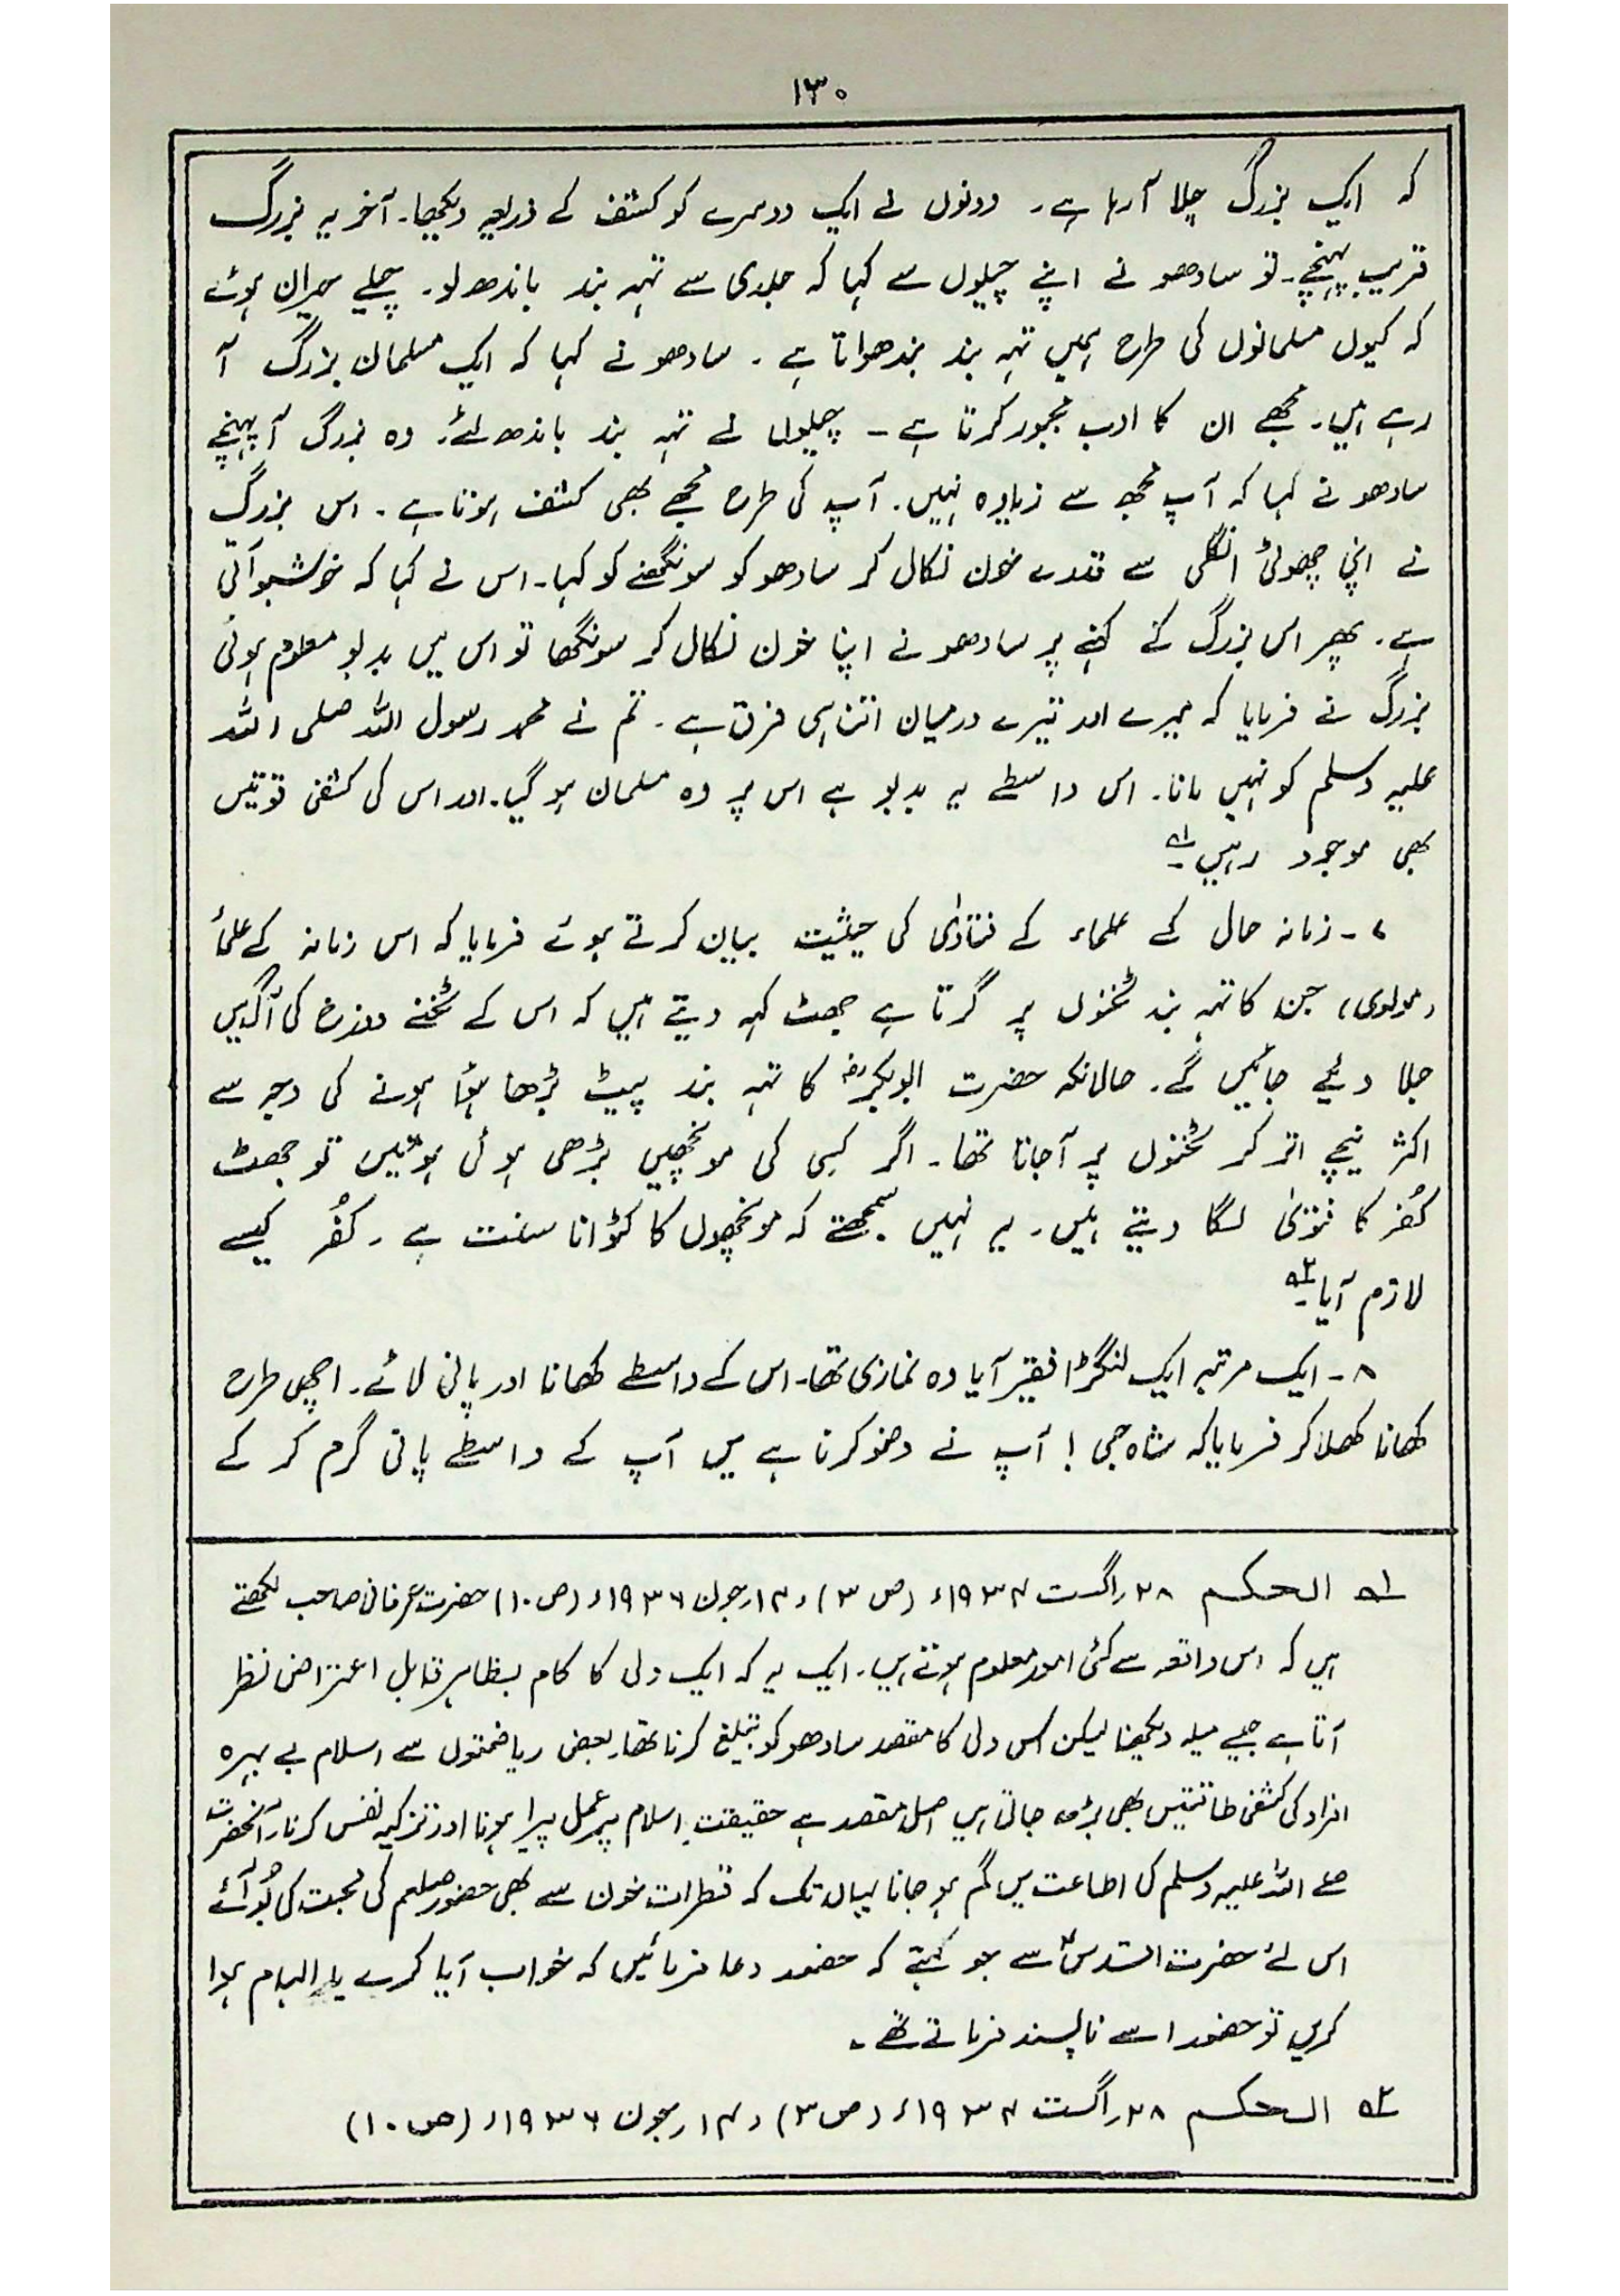 ۱۳۰
کہ ایک بزرگ چلا آرہا ہے۔ دونوں نے ایک دوسرے کو کشف کے ذریعہ دیکھا۔ آخر یہ بزرگ
قریب پہنچے۔ تو سادھو نے اپنے چیلوں سے کہا کہ جلدی سے تہہ بند باندھ لو۔ چیلے حیران ہوئے
کہ کیوں مسلمانوں کی طرح ہمیں تہہ بند بندھواتا ہے۔ سادھو نے کہا کہ ایک مسلمان بزرگ آ
رہے ہیں۔ مجھے ان کا ادب مجبور کرتا ہے – چیلوں نے تہہ بند باندھ لئے۔ وہ بزرگ آپہنچے
سادھو نے کہا کہ آپ مجھ سے زیادہ نہیں۔ آپ کی طرح مجھے بھی کشف ہوتا ہے۔ اس بزرگ
نے اپنی چھوٹی انگلی سے قدرے خون نکال کر سادھو کو سونگھنے کو کہا۔ اس نے کہا کہ خوشبو آتی
ہے۔ پھر اس بزرگ کے کہنے پر سادھو نے اپنا خون نکال کر سونگھا تو اس میں بدبو معلوم ہوئی
بزرگ نے فرمایا کہ میرے اور تیرے درمیان اتنا ہی فرق ہے۔ تم نے محمد رسول اللہ صلی اللہ
علیہ وسلم کو نہیں مانا۔ اس واسطے یہ بدبو ہے اس پر وہ مسلمان ہو گیا۔ اور اس کی کشفی قوتیں
بھی موجود رہیں۔؎۱
۷۔ زمانہ حال کے علماء کے فتاوٰی کی حیثیت بیان کرتے ہوئے فرمایا کہ اس زمانہ کے علماء
(مولوی) جن کا تہہ بند ٹخنوں پر گرتا ہے جھٹ کہہ دیتے ہیں کہ اس کے ٹخنے دوزخ کی آگ میں
جلا دئیے جائیں گے۔ حالانکہ حضرت ابوبکرؓ کا تہہ بند پیٹ بڑھا ہؤا ہونے کی وجہ سے
اکثر نیچے اتر کر ٹخنوں پر آجاتا تھا۔ اگر کسی کی مونچھیں بڑھی ہوئی ہوئیں تو جھٹ
کُفر کا فتوٰی لگا دیتے ہیں۔ یہ نہیں سمجھتے کہ مونچھوں کا کٹوانا سنت ہے۔ کفُر کیسے
لازم آیا۔؎۲
۸۔ ایک مرتبہ ایک لنگڑا فقیر آیا وہ نمازی تھا۔ اس کے واسطے کھانا اور پانی لائے۔ اچھی طرح
کھانا کھلا کر فرمایا کہ شاہ جی! آپ نے وضو کرنا ہے میں آپ کے واسطے پانی گرم کر کے
؎۱ الحکم ۲۸؍اگست ۱۹۳۴ء (ص ۳) و ۱۴؍جون ۱۹۳۶ء (ص ۱۰) حضرت عرفانی صاحب لکھتے
ہیں کہ اس واقعہ سے کئی امور معلوم ہوتے ہیں۔ ایک یہ کہ ایک ولی کا کام بظاہر قابل اعتراض نظر
آتا ہے جیسے میلہ دیکھنا لیکن اس ولی کا مقصد سادھو کو تبلیغ کرنا تھا۔ بعض ریاضتوں سے اسلام بے بہرہ
افراد کی کشفی طاقتیں بھی بڑھ جاتی ہیں اصل مقصد ہے حقیقت اسلام پر عمل پیرا ہونا اور تزکیہ نفس کرنا۔ آنحضرت
صلے اللہ علیہ وسلم کی اطاعت میں گم ہو جانا یہاں تک کہ قطرات خون سے بھی حضور صلعم کی محبت کی بُو آئے
اس لئے حضرت اقدسؑ سے جو کہتے کہ حضور دعا فرمائیں کہ خواب آیا کرے یا الہام ہوا
کریں تو حضور اسے ناپسند فرماتے تھے۔
؎۲ الحکم ۲۸؍اگست ۱۹۳۴ء (ص ۳) و ۱۴؍جون ۱۹۳۶ء (ص ۱۰)